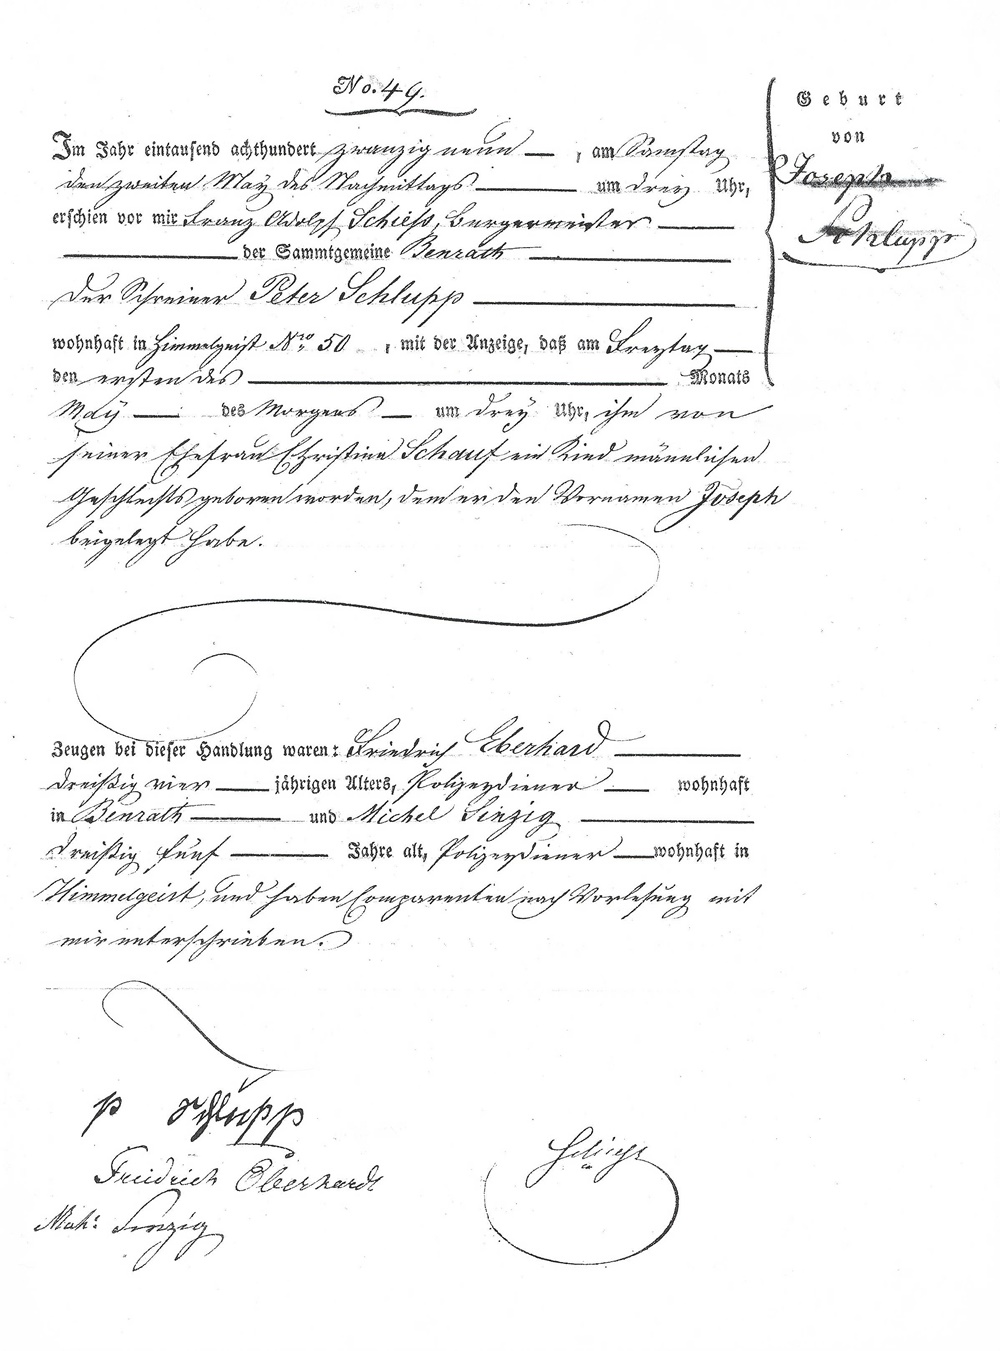 No. 49.
Geburt
von
Joseph
Schlupp
Im Jahr eintausend achthundert zwanzig neun, am Samstag
den zweiten May des Nachmittags um drey Uhr,
erschien vor mir Franz Adolph Schieß, Burgermeister
der Sammtgemeine Benrath
der Schreiner Peter Schlupp
wohnhaft in Himmelgeist Nro 50, mit der Anzeige, daß am Freytag
den ersten des Monats
May des Morgens um drey Uhr, ihm von
seiner Ehefrau Christina Schauf ein Kind männlichen
Geschlechts geboren worden, dem er den Vornamen Joseph
beigelegt habe.
Zeugen bei dieser Handlung waren: Friedrich Eberhard
dreißig vier jährigen Alters, Polizeydiener wohnhaft
in Benrath und Michel Sinzig
dreißig fünf Jahre alt, Polizeydiener wohnhaft in
Himmelgeist, und haben Comparenten nach Vorlesung mit
mir unterschrieben.
P Schlupp
Freidrich Eberhardt
Mich: Sinzig